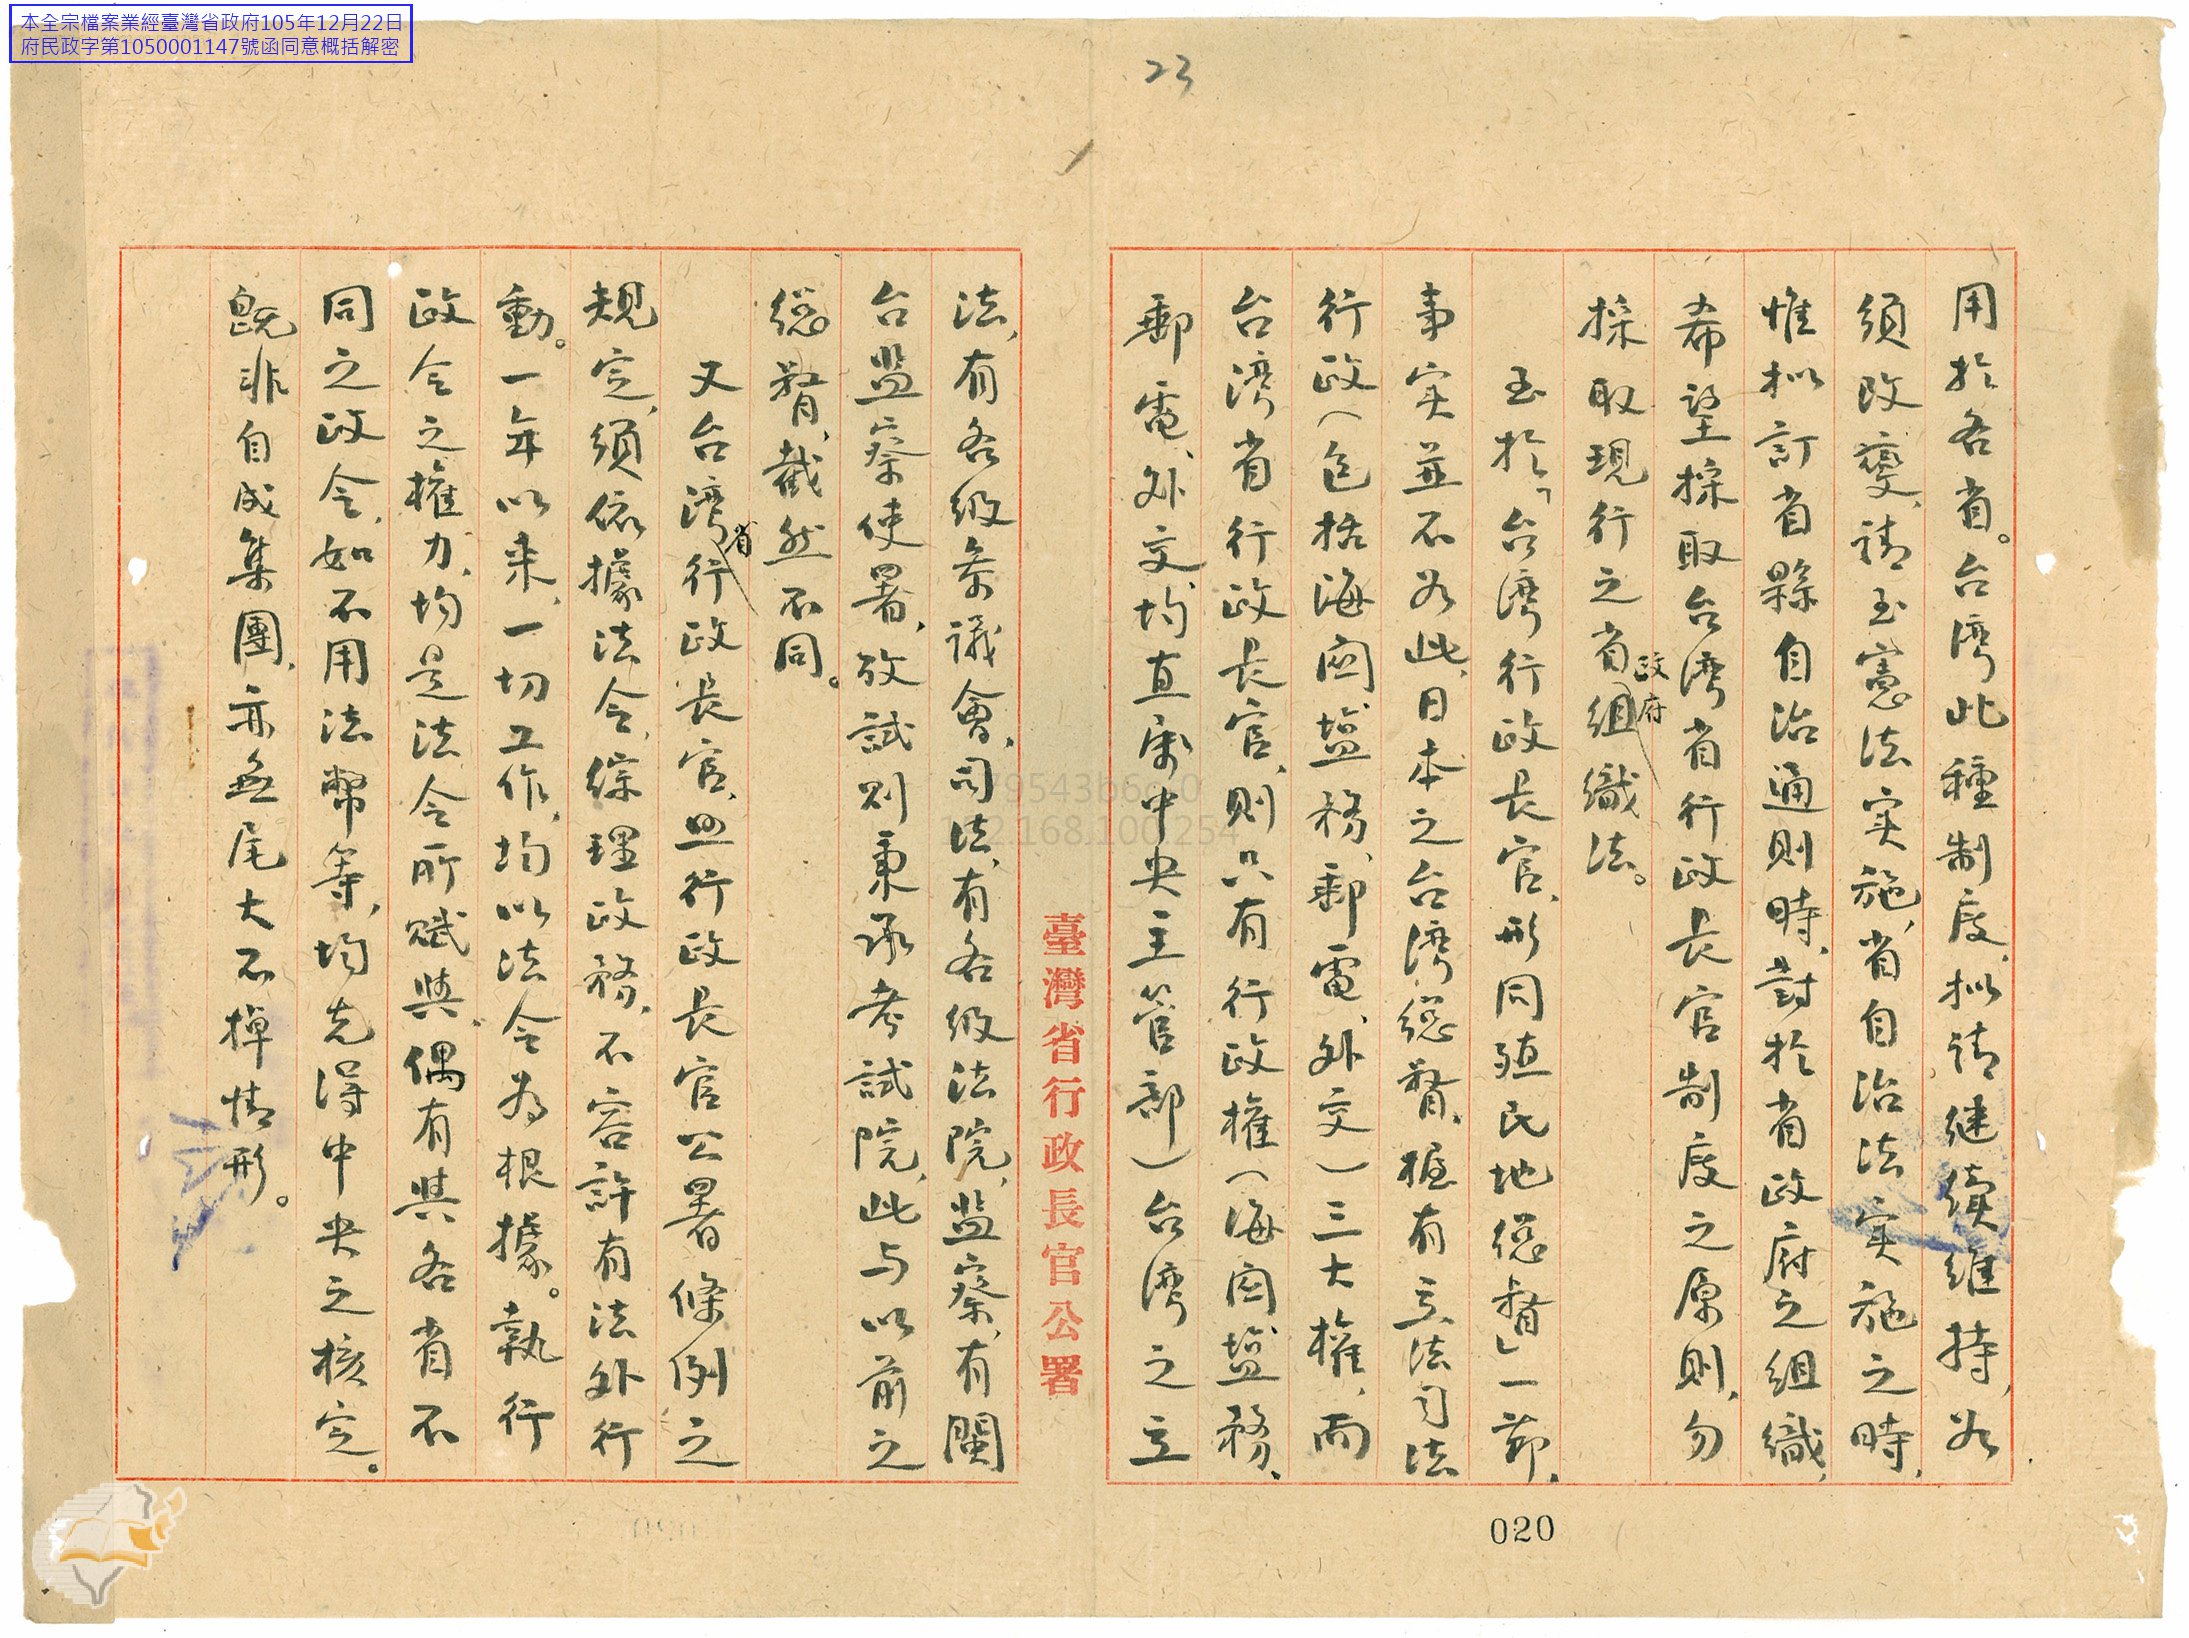 本全宗檔案業經臺灣省政府105年12月22日
府民政字第1050001147號函同意概括解密
23
用於各省。台湾此種制度,拟請継續維持,为
須改變,請至憲法実施,省自治法実施之時,
惟拟訂省縣自治通則時,對於省政府之組織,
希望採取台湾省行政長官制度之原則,勿
採取現行之省政府組織法。
至於「台湾行政長官,形同殖民地總督」一節,
事实並不如此,日本之台湾總督,握有立法司法
行政(包括海関、塩務、郵電、外交)三大權,而
台湾省行政長官,則只有行政權(海関、塩務、
郵電、外交,均直屬中央主管部)台湾之立
臺灣省行政長官公署
法,有各級參議會,司法,有各級法院,監察,有閩
台监察使署,攷試則秉承考試院,此与以前之
總督,截然不同。
又台湾省行政長官,與行政長官公署條例之
規定,須依據法令,綜理政務,不容許有法外行
動。一年以来,一切工作,均以法令為根據。執行
政令之權力,均是法令所賦與,偶有與各省不
同之政令,如不用法幣等,均先得中央之核定。
既非自成集團,亦無尾大不掉情形。
020
79543b6cc0
192.168.100.254